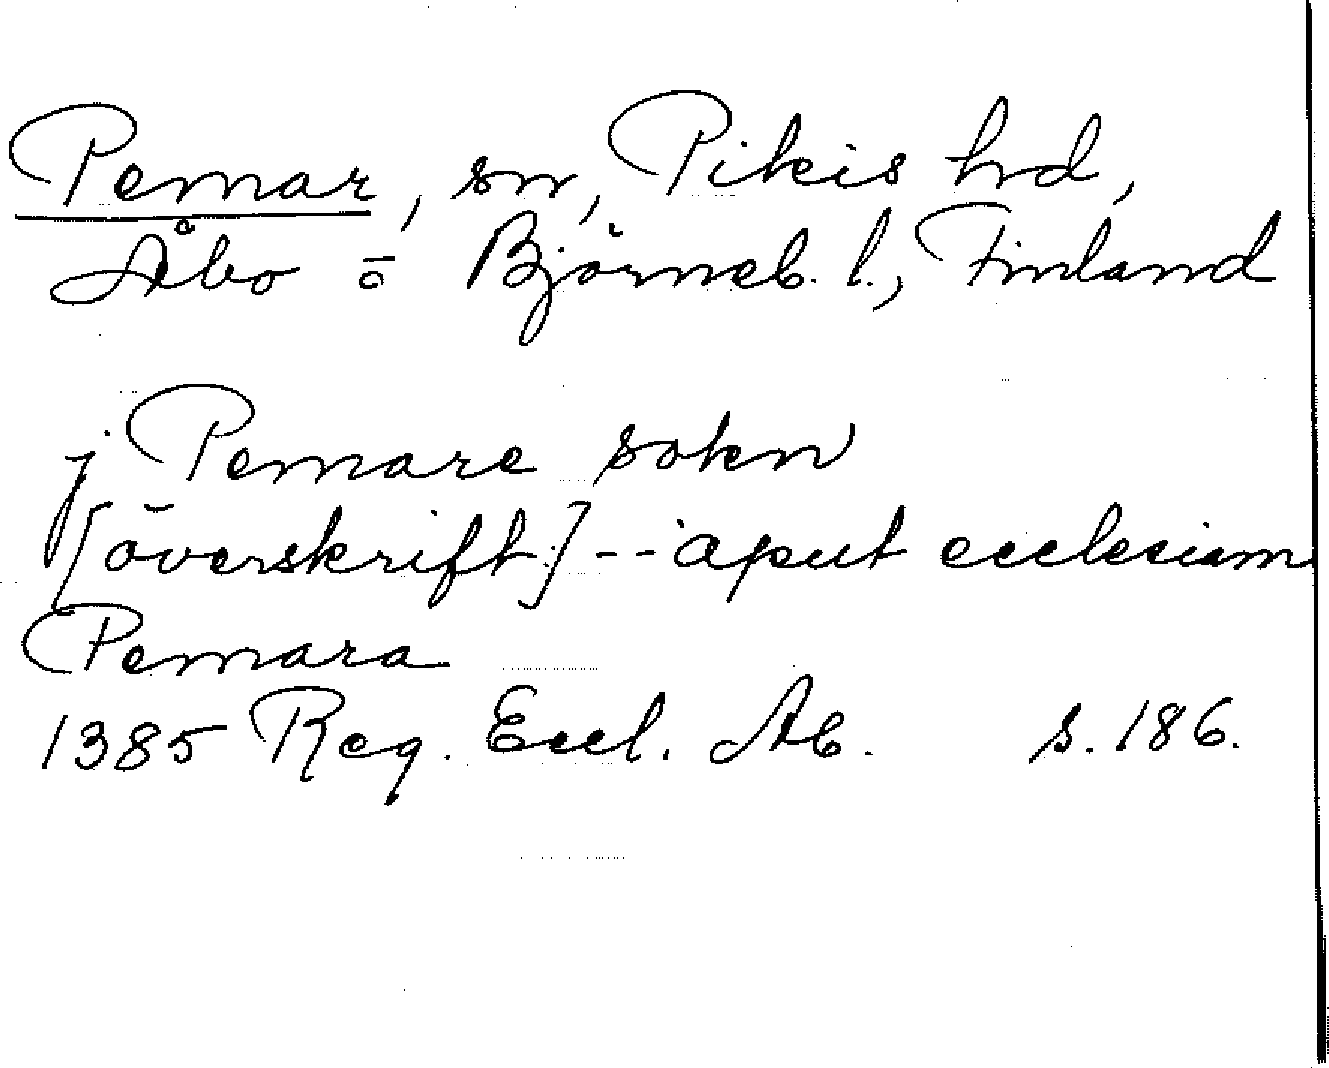 Pemar, sn, Pikis hd,
Åbo o Björneb. l., Finland
j Pemare sokn
[överskrift] -- aput ecclesiam
Pemara
1385 Reg. Eccl. Ab. s. 186.